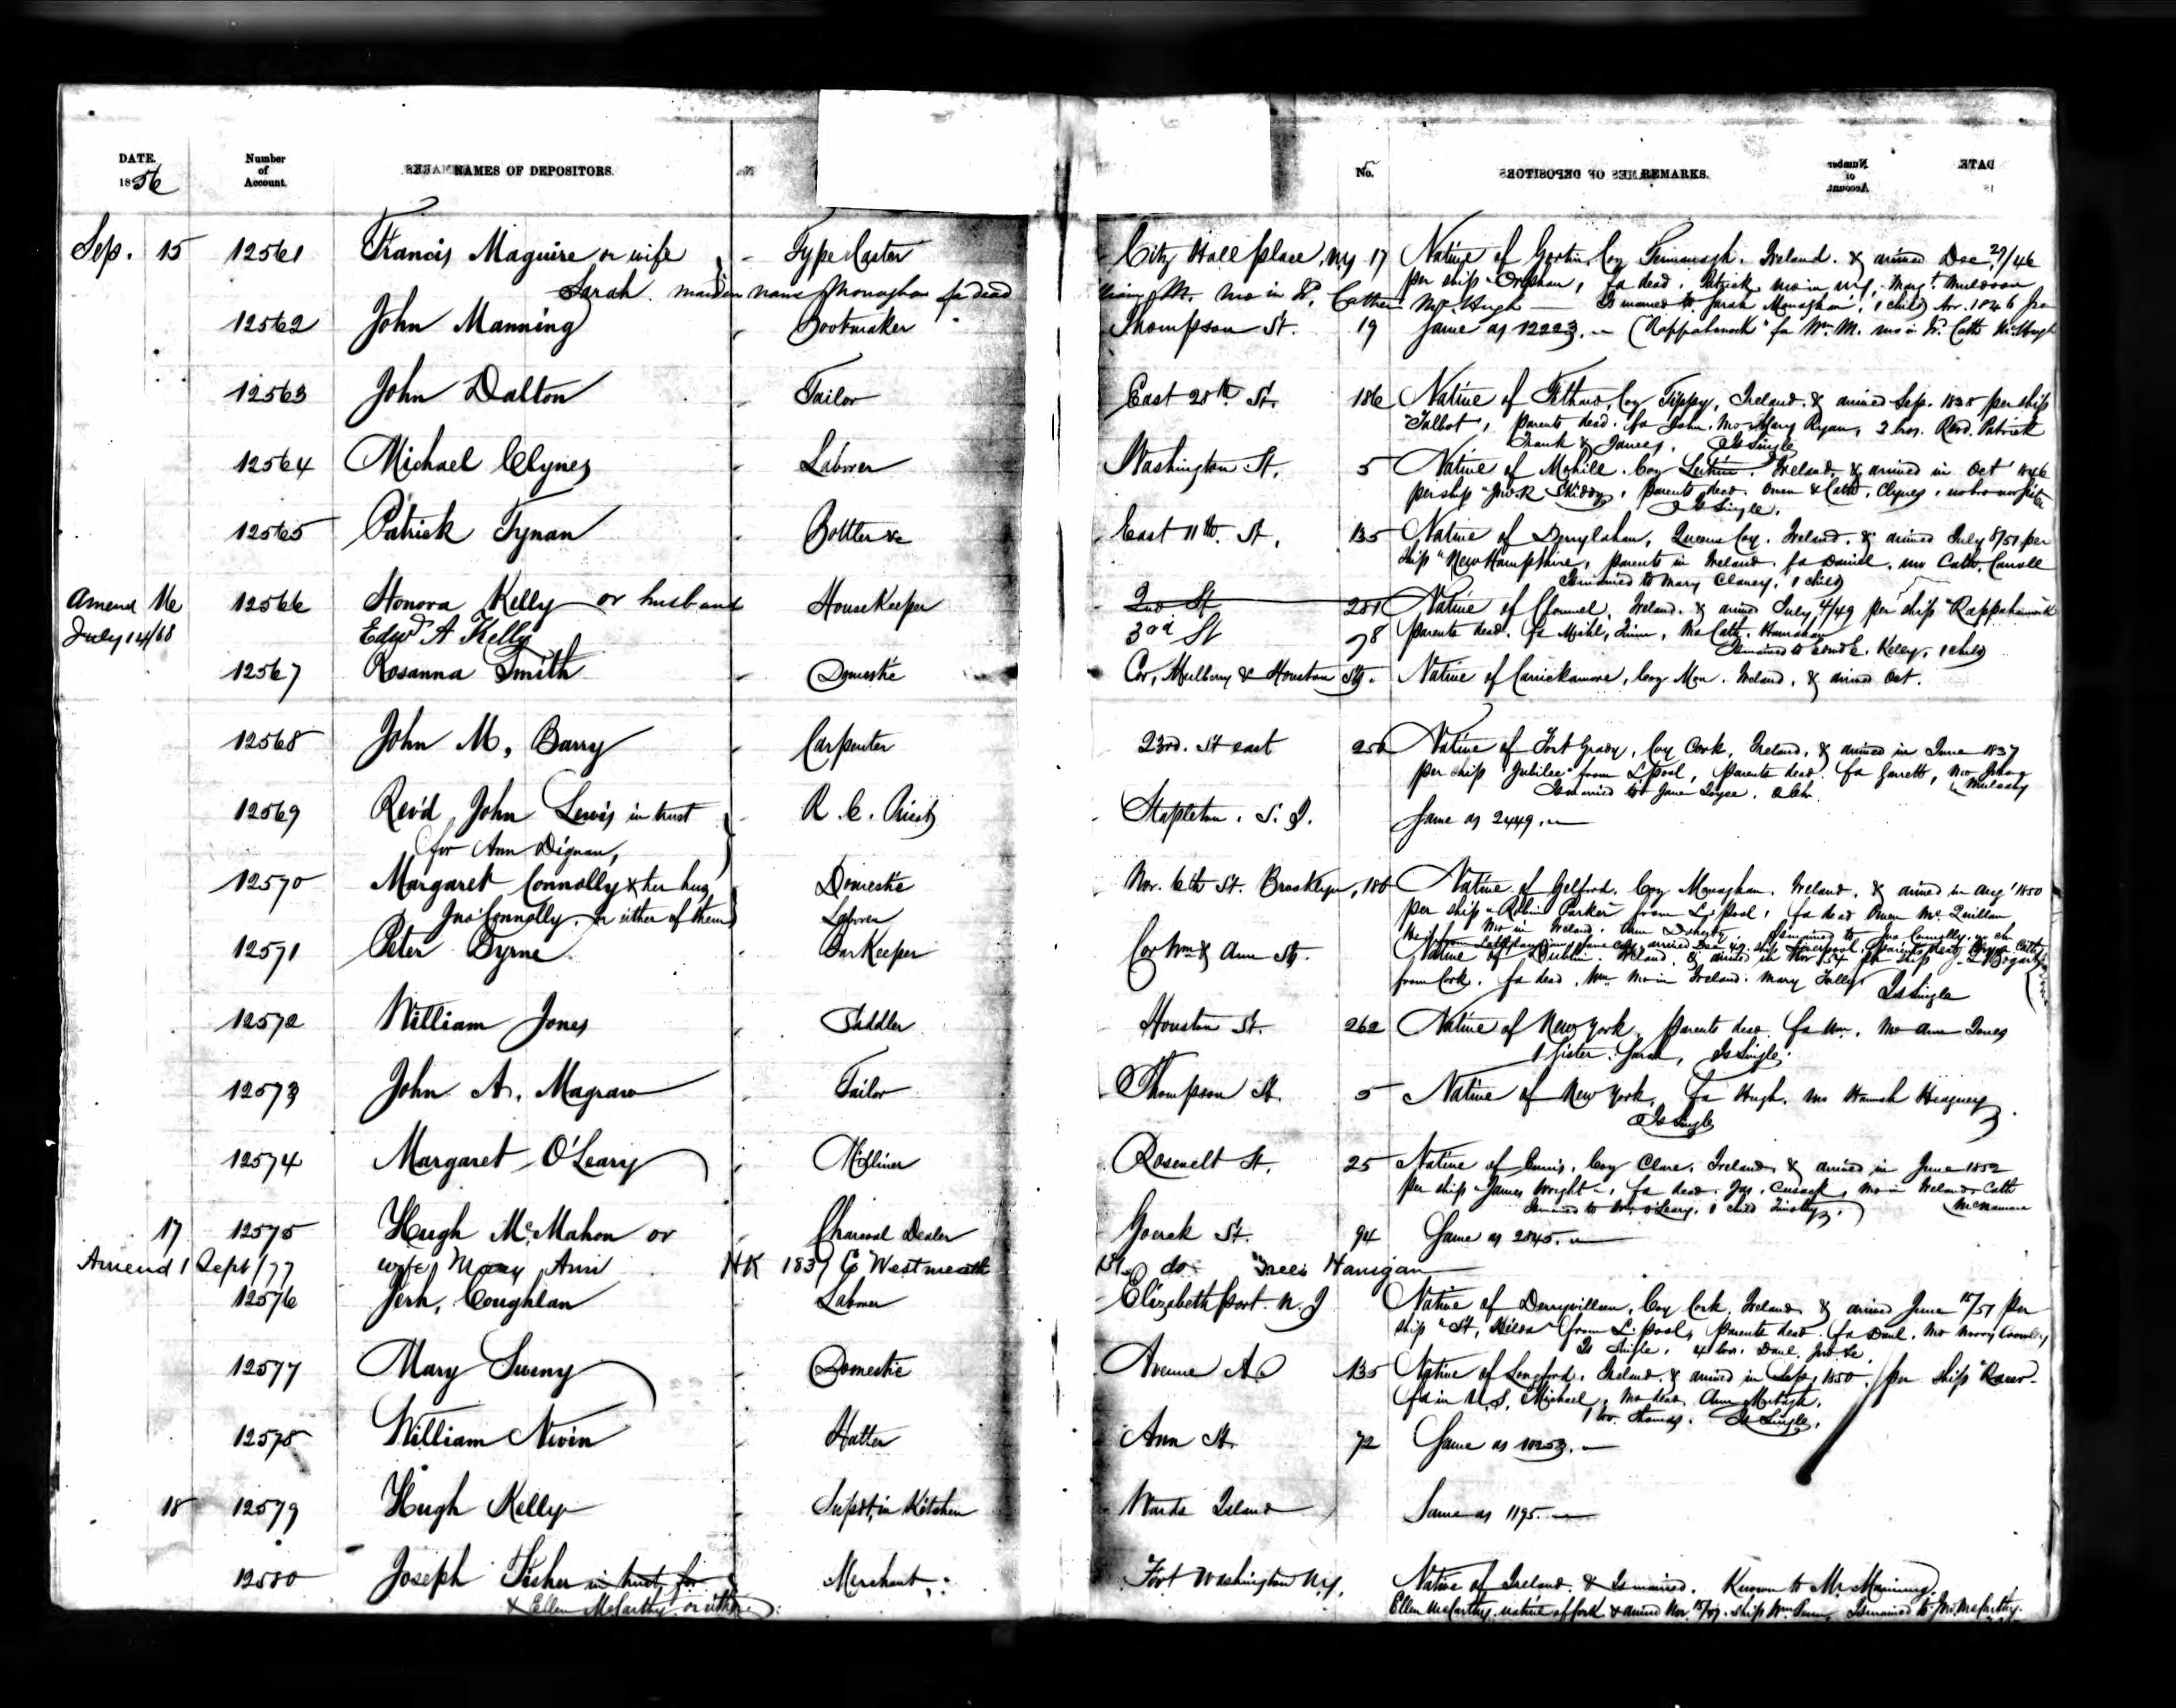 DATE. Number of Account. NAMES OF DEPOSITORS. No. REMARKS.
1856
Sep. 15 12561 Francis Maguire or wife - Type Caster City Hall place, N.Y 17 Native of Gortin, Coy Fermanagh. Ireland. & arrived Dec 27/46
Sarah. maiden name Monaghan fa dead
per ship "Orphan, fa dead, Patrick mo in N.Y. Margt. Muldoon
M. mo in Id. Cathe McHugh Is married to Sarah Monaghan, 1 child Arr. 1846
12562 John Manning Bootmaker Thompson St. 19 Same as 12223. (Rappahanock" fa Wm. M. mo in Id. Cath McHugh
12563 John Dalton Tailor East 20th. St. 186 Native of Fethard, Coy Tippy, Ireland. & arrived Sep. 1838 per ship
"Talbot", parents dead. fa John. Mo Mary Ryan, 3 bros. Revd. Patrick
Frank & James. Is Single
12564 Michael Clynes Laborer Washington St. 5 Native of Mohill. Coy Leitrim. Ireland, & arrived in Oct 1846
per ship "Jno. R Skiddy, parents dead. Owen & Cath. Clynes, no bro nor sister
Is Single.
12565 Patrick Tynan Bottler &c East 11th. St. 135 Native of Derrylahan, Queens Coy. Ireland, & arrived July 8/51 per
ship "New Hampshire, parents in Ireland. fa Daniel, mo Cath. Carroll
Is married to Mary Clancy. 1 child
Amend 16 12566 Honora Kelly or husband HouseKeeper 2nd St 281 Native of Clonmel. Ireland. & arrived July 4/49 per ship "Rappahanock
July 14/68 Edwd A Kelly 3rd St 78 parents dead. fa Michl, Finn, Mo Cath. Hanrahan
Is married to Edwd E. Kelly, 1 child
12567 Rosanna Smith Domestic Cor, Mulberry & Houston Sts. Native of Carrickamore, Coy Mon. Ireland, & arrived Oct.
12568 John M, Barry Carpenter 23rd. St east 250 Native of Fort Grady, Coy Cork, Ireland, & arrived in June 1837
per ship "Jubilee" from L'pool, parents dead. fa Garrett, mo
Is married to Jane Joyce. 2 chn. Mulcahy
12569 Rev'd John Lewis in trust R. C. Priest Stapleton. S. I. Same as 2449.
for Ann Dignan,
12570 Margaret Connolly & her hus, Domestic Nor. 6th St. Brooklyn, 186 Native of Gelford. Coy Monaghan. Ireland. & arrived in Aug 1850
Jno Connolly. or either of them Laborer per ship "Robin Parker" from L'pool, fa dead Owen McQuillan
mo in Ireland. Ann Doherty. Is married to Jno Connolly. no ch
12571 Peter Byrne BarKeeper Cor Wm & Ann Sts. Native of Dublin. Ireland, & arrived in Nov /54 per ship
from Cork. fa dead, Wm. Mo in Ireland. Mary Tully. Is Single
12572 William Jones Saddler Houston St. 262 Native of New York, parents dead. fa Wm. Mo Ann Jones
1 Sister. Sarah, Is Single.
12573 John A. Magraw Tailor Thompson St. 5 Native of New York, fa Hugh. mo Hannah Heagney
Is Single
12574 Margaret O'Leary Milliner Rosevelt St. 25 Native of Ennis. Coy Clare. Ireland, & arrived in June 1852
per ship "James Wright", fa dead. Jas. Cusack, mo in Ireland. Cath
Is married to Wm. O'Leary. 1 child Timothy. McNamara
17 12575 Hugh McMahon or Charcoal Dealer Goerck St. 94 Same as 2845.
Amend 1 Sept/77 wife Mary Ann HK 1837 Co Westmeath 131. do "nee" Hanigan
12576 Jerh. Coughlan Laborer Elizabeth port. N. J Native of Derryvillun, Coy Cork, Ireland & arrived June 15/51 per
ship "St, Hilda" from L'pool, parents dead. fa Danl. Mo Norry Crowley
Is Single. 4 bros. Danl. Jno. &c.
12577 Mary Sweny Domestic Avenue A. 135 Native of Longford. Ireland. & arrived in Sep, 1850. per ship "Racer.
fa in U.S. Michael, Mo dead. Ann Murtagh.
1 bro. Thomas. Is Single.
12578 William Nivin Hatter Ann St. 72 Same as 10253.
18 12579 Hugh Kelly Supdt, in Kitchen Wards Island Same as 1195.
12580 Joseph Fisher in trust for Merchant, Fort Washington N.Y, Native of Ireland. & Is married. Known to Mr Manning,
& Ellen McCarthy or either Ellen McCarthy. native of Cork & arrived Nov. 15/49. Ship Wm Penn, Is married to Jno. McCarthy.